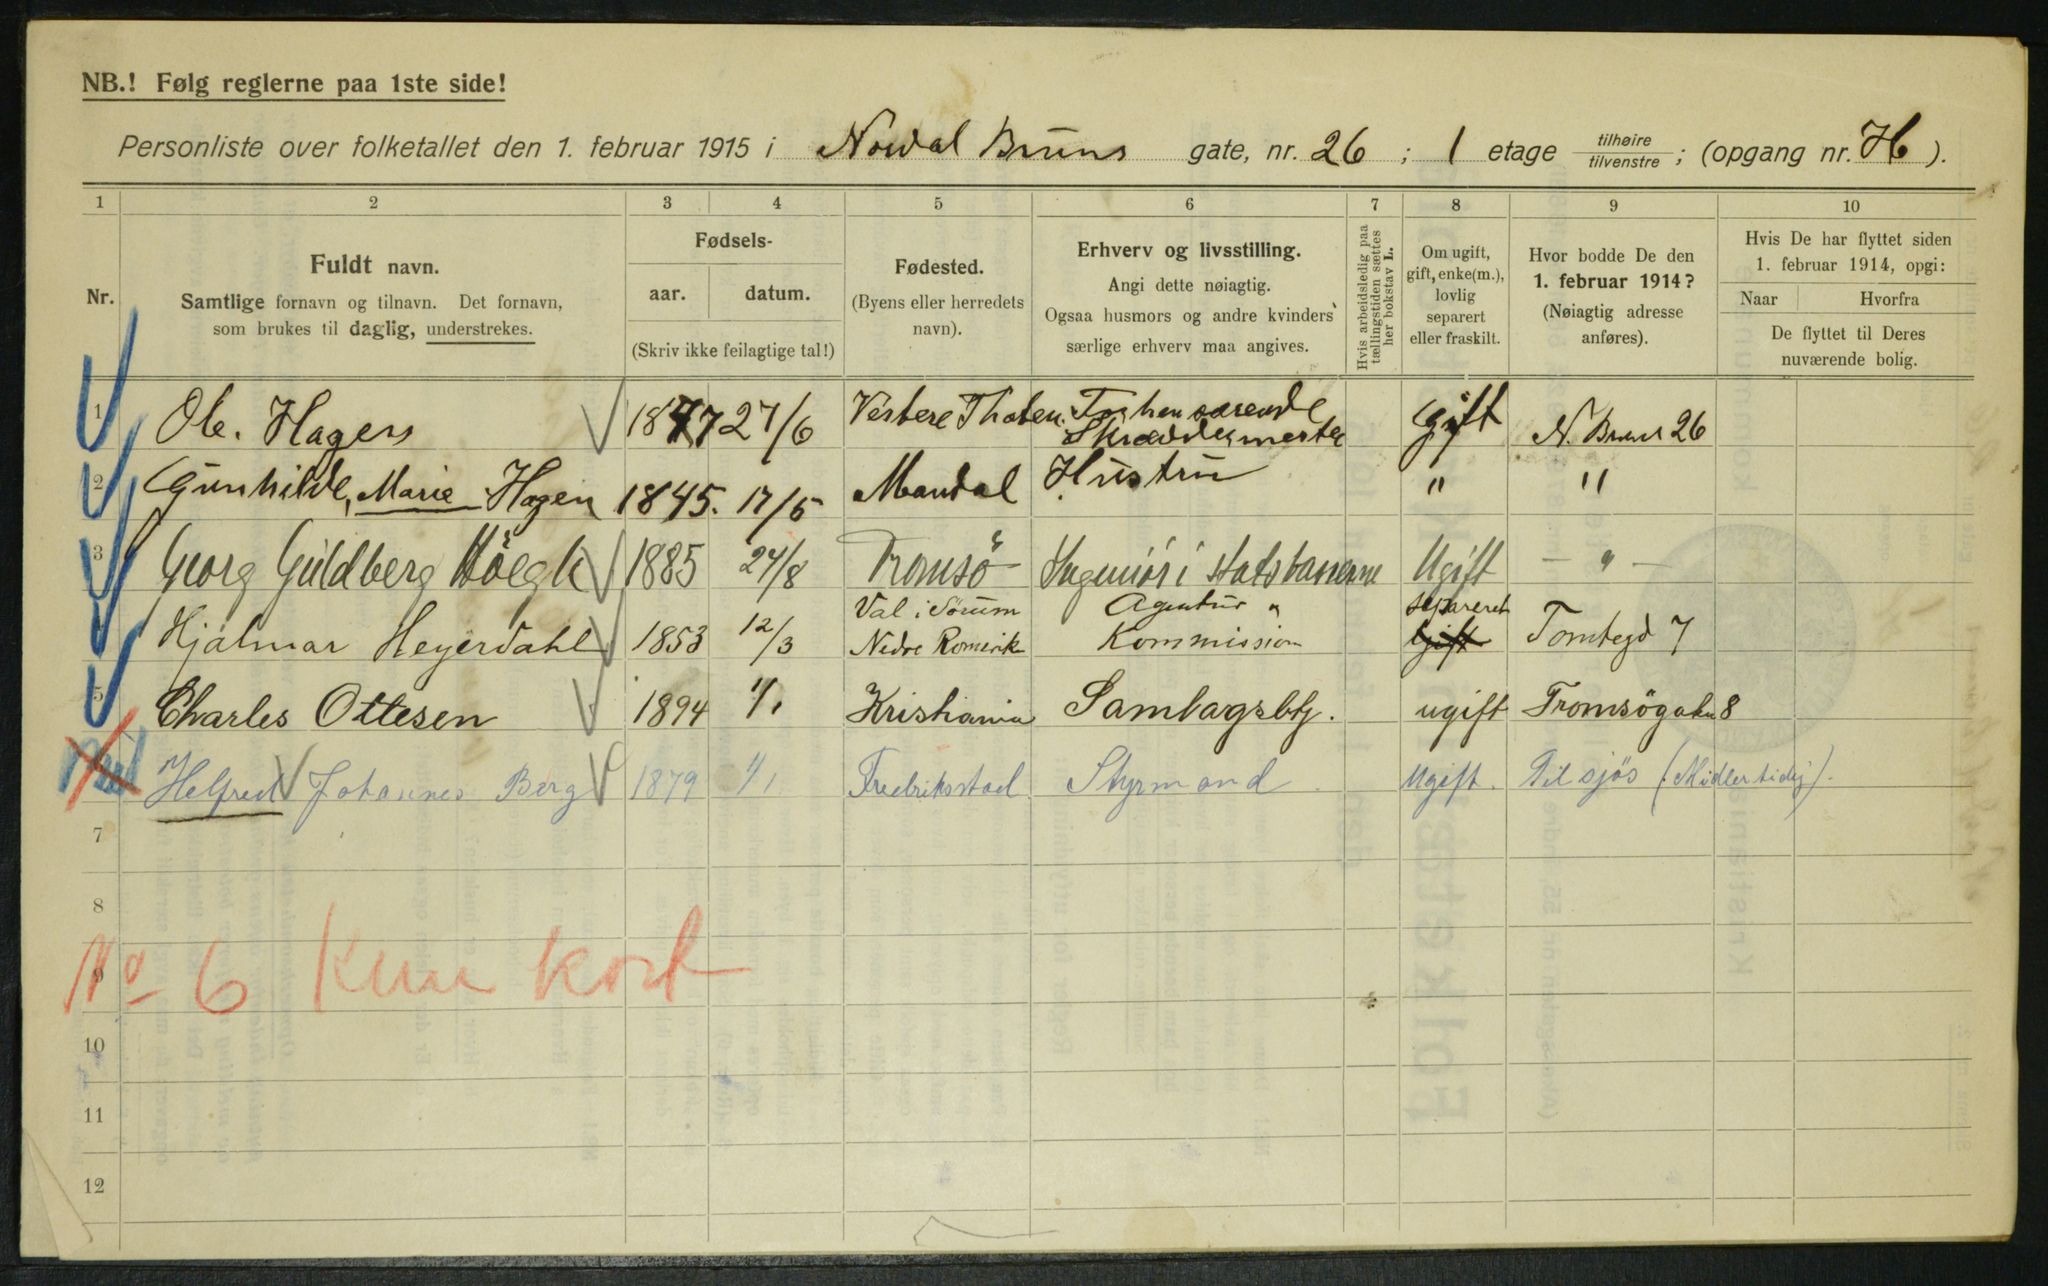 NB.! Følg reglerne paa 1ste side!
Personliste over folketallet den 1. februar 1915 i Nordal Bruns gate, nr. 26 ; 1 etage tilhøire / tilvenstre ; (opgang nr. H).
1 2 3 4 5 6 7 8 9 10
Nr.
Fuldt navn.
Samtlige fornavn og tilnavn. Det fornavn,
som brukes til daglig, understrekes.
Fødsels-
aar. datum.
(Skriv ikke feilagtige tal!)
Fødested.
(Byens eller herredets
navn).
Erhverv og livsstilling.
Angi dette nøiagtig.
Ogsaa husmors og andre kvinders
særlige erhverv maa angives.
Hvis arbeidsledig paa
tællingstiden sættes
her bokstav L.
Om ugift,
gift, enke(m.),
lovlig
separert
eller fraskilt.
Hvor bodde De den
1. februar 1914?
(Nøiagtig adresse
anføres).
Hvis De har flyttet siden
1. februar 1914, opgi:
Naar Hvorfra
De flyttet til Deres
nuværende bolig.
1 Ole. Hagen 1847 27/6 Vestere Thoten Skræddermester Gift N. Bruns 26
2 Gunhilde, Marie Hagen 1845. 17/5 Mandal Hustru " "
3 Georg Guldberg Höegh 1885 24/8 Tromsö Ingeniör i statsbanerne Ugift — " —
4 Hjalmar Heyerdahl 1853 12/3 Val i Sörum Nedre Romerike Agentur & Kommission separeret Gift Tomtegd 7
5 Charles Ottesen 1894 1/1 Kristiania Samlagsbtj. ugift Tromsögaten 8
Helfred Johannes Berg 1879 1/1 Fredriksstad Styrmand Ugift. Til sjös (Midlertidig).
7
8
9
No 6 Kun kort
10
11
12